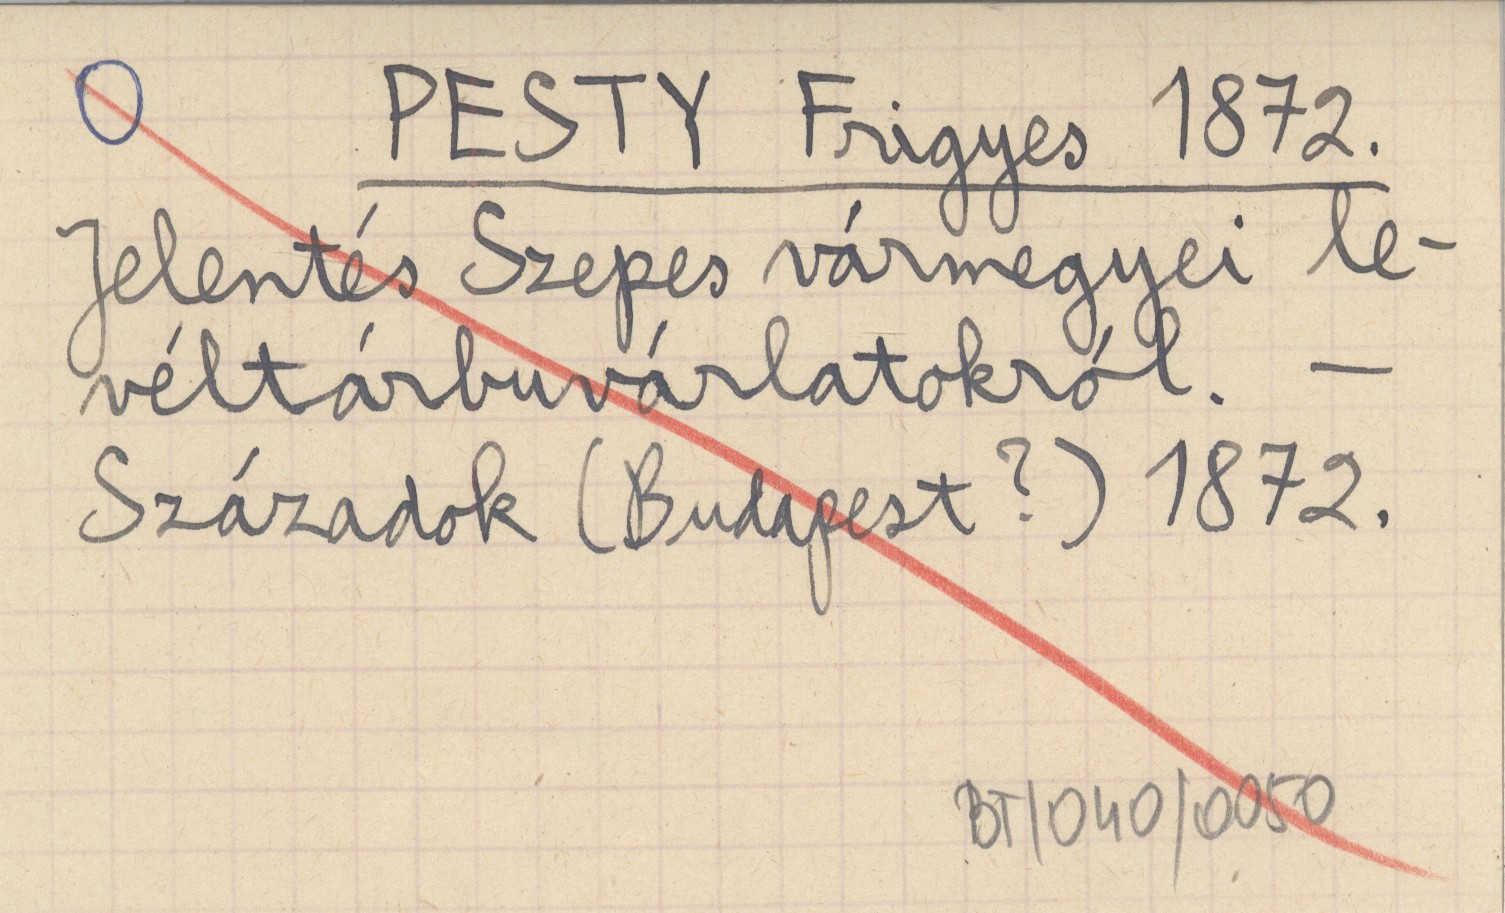 O
PESTY Frigyes 1872.
Jelentés Szepes vármegyei le-
véltárbuvárlatokról. —
Századok (Budapest?) 1872.
BT/040/0050